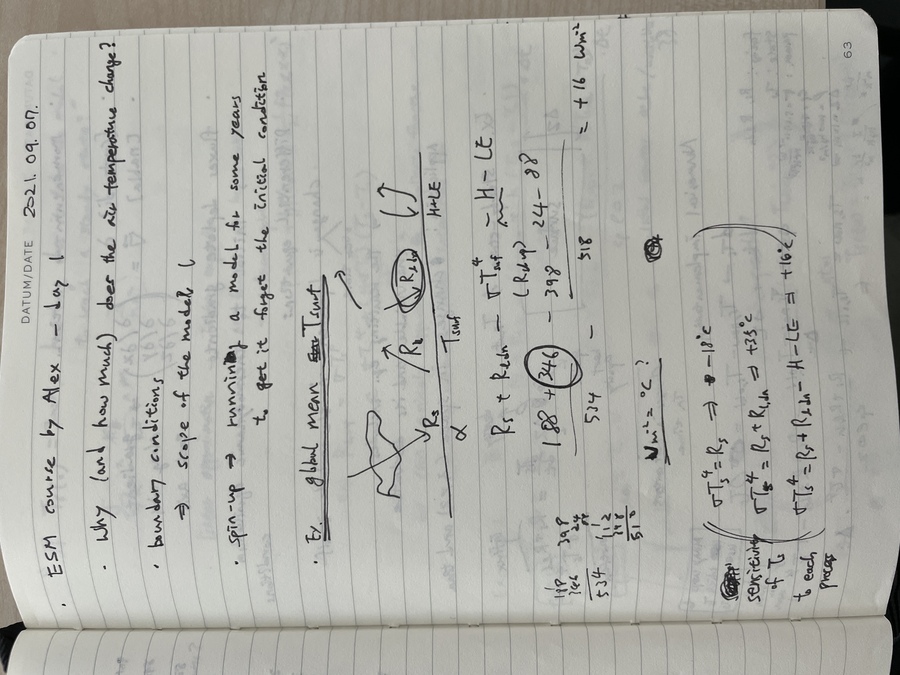 DATUM/DATE 2021. 09. 07.
· ESM course by Alex – day 1
· Why (and how much) does the air temperature change?
· boundary conditions
⇒ scope of the model
· spin-up ⇒ running a model for some years
to get it forget the initial condition
· Ex. global mean Tsurf
Rs
Rl
Rl,dn
H+LE
α Tsurf
Rs + Rl,dn − σTsurf⁴ − H − LE
(Rl,up)
188 + 346 − 398 − 24 − 88
534 − 518 = +16 Wm⁻²
188
346
534
398
24
88
510
Wm⁻² = °C ?
sensitivity
of Ts
to each
process
σTs⁴ = Rs ⇒ −18°C
σTs⁴ = Rs + Rl,dn ⇒ +35°C
σTs⁴ = Rs + Rl,dn − H − LE ⇒ +16°C
63